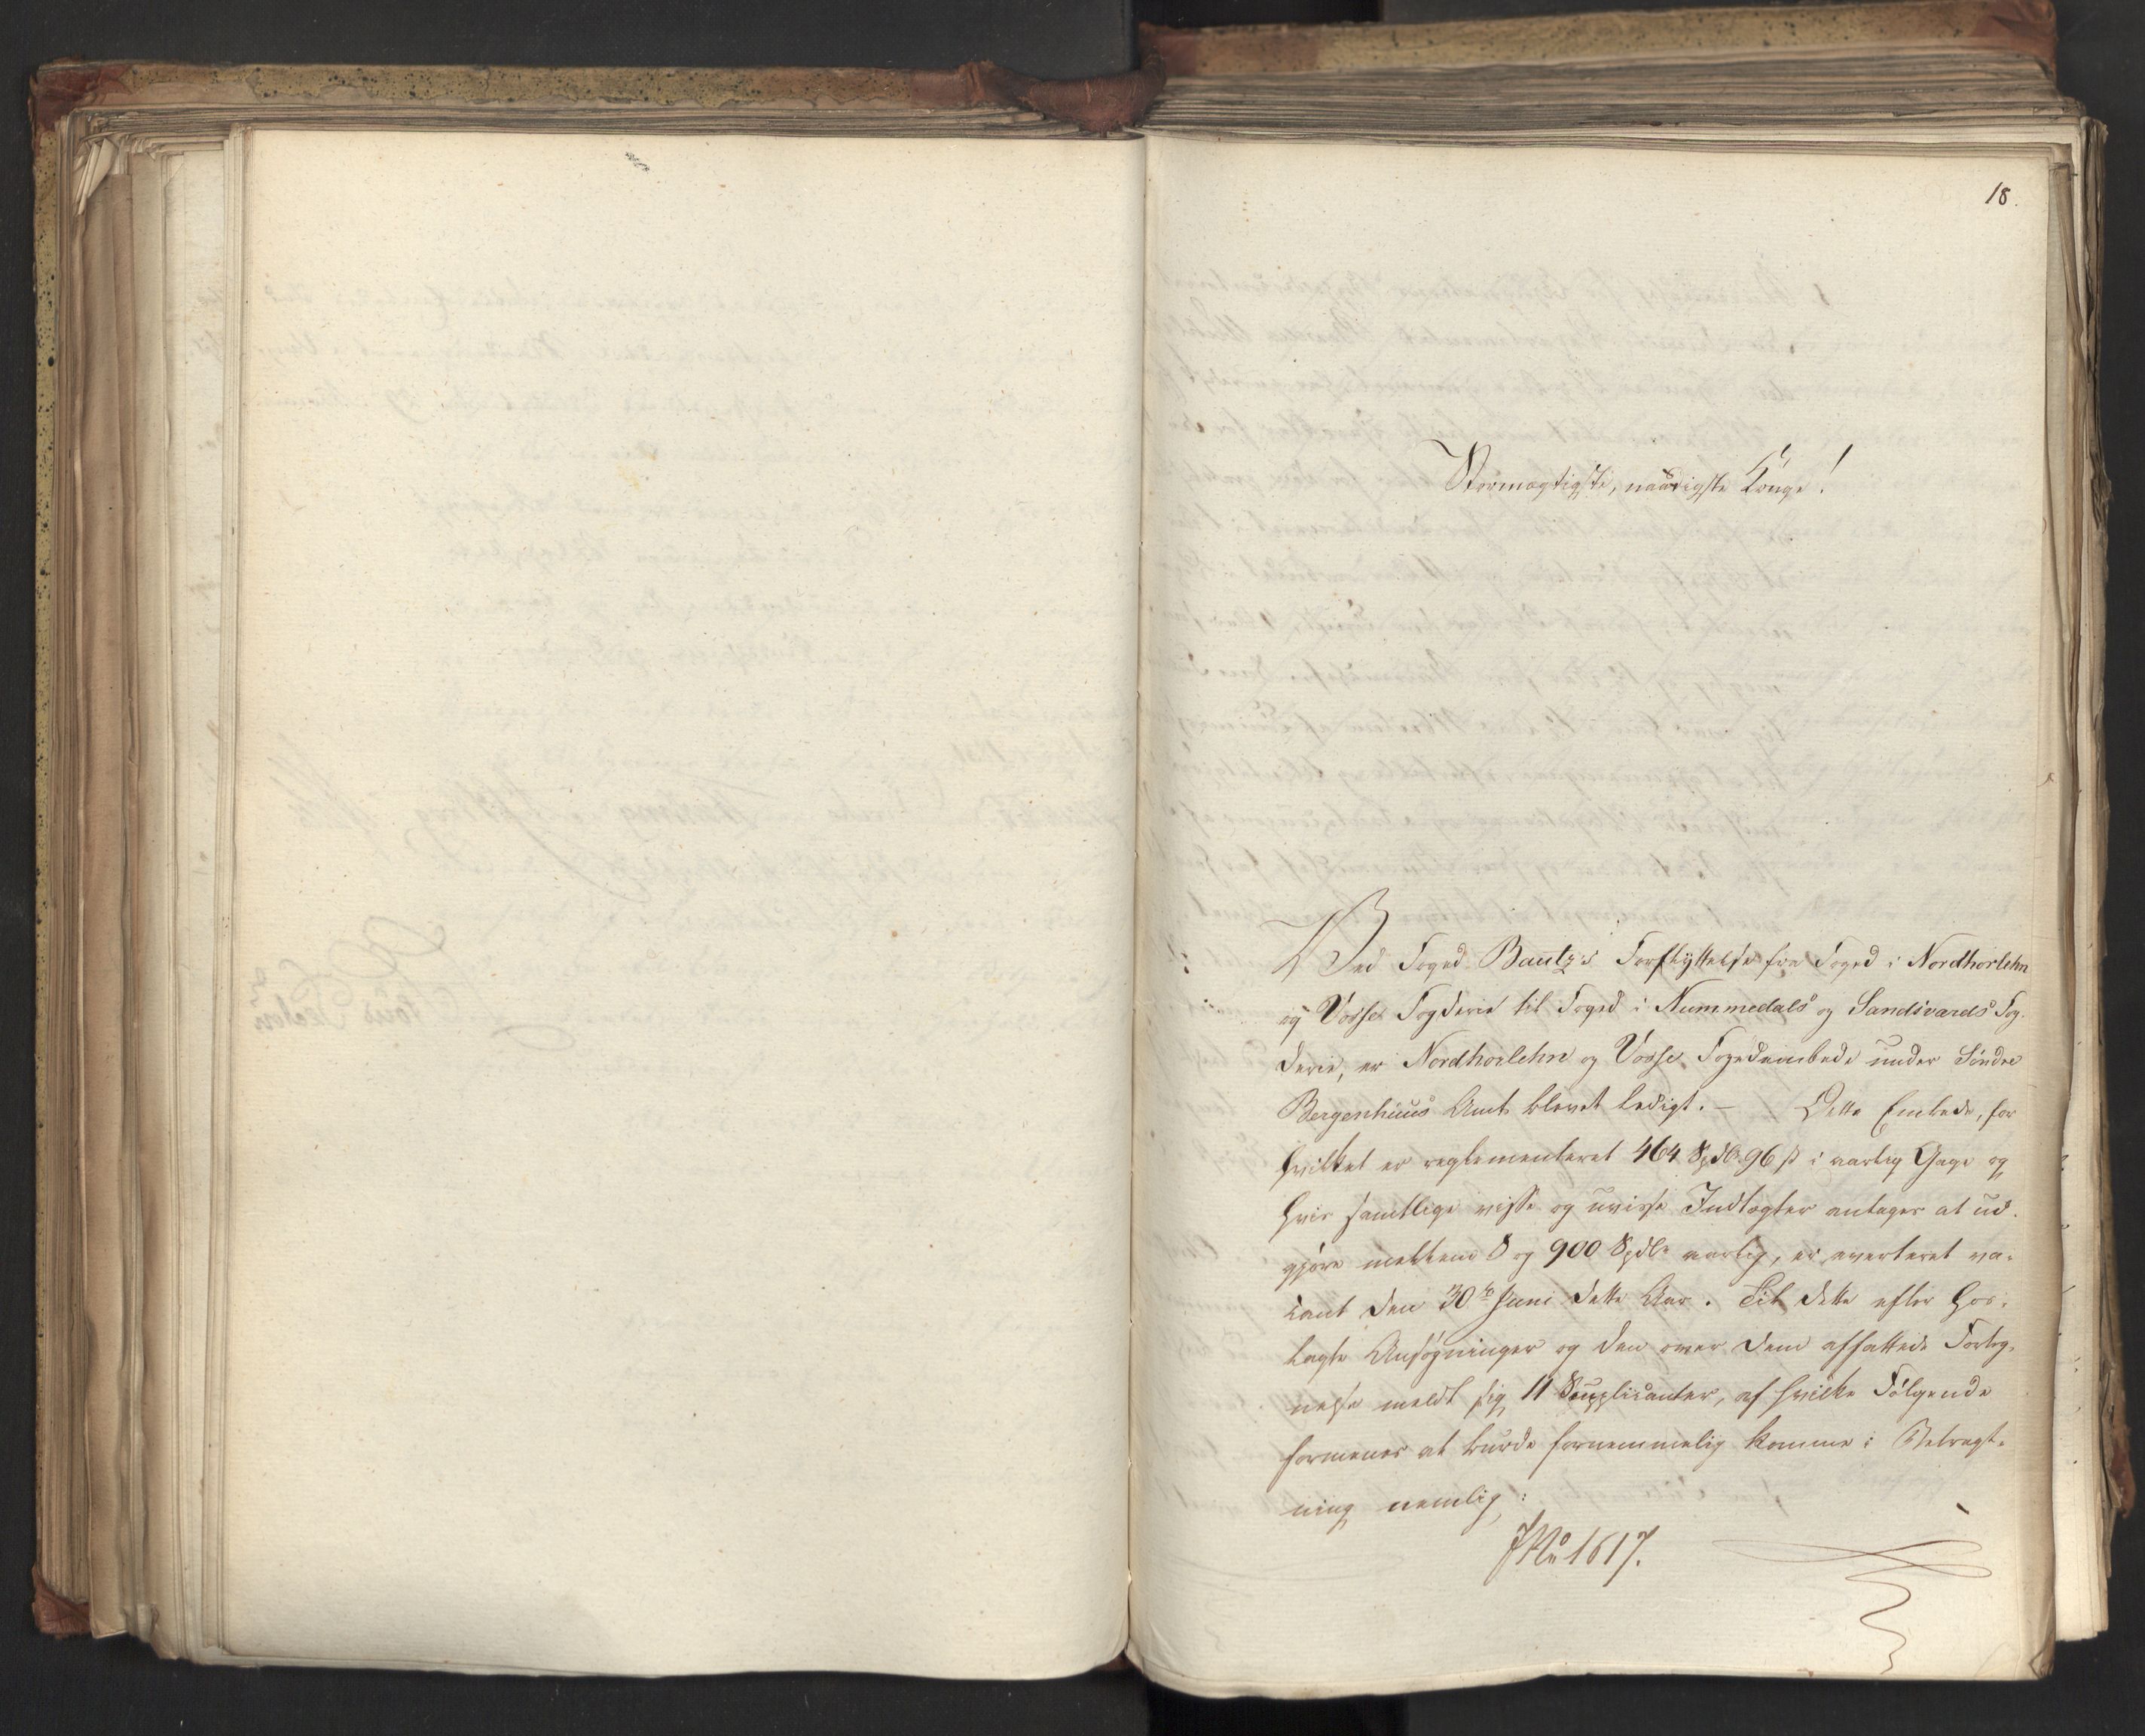 18.
Stormægtigste, naadigste Konge!
Ved Foged Bautz's Forflyttelse fra Foged i Nordhorlehn
og Vosse Fogderie til Foged i Nummedals og Sandsværds Fog-
derie, er Nordhorlehn og Vosse Fogedembede under Søndre
Bergenhuus Amt blevet ledigt. — Dette Embede, for
hvilket er reglementeret 464 Spd 96 ß i aarlig Gage og
hvis samtlige visse og uvisse Indtægter antages at ud-
gjøre mellem 8 og 900 Spdlr aarlig, er averteret va-
cant den 30te Juni dette Aar. Til dette efter hos-
lagte Ansøgninger og den over dem affattede Forteg-
nelse meldt sig 11 Supplicanter, af hvilke Følgende
formenes at burde fornemmelig komme i Betragt-
ning nemlig:
JNo 1617.